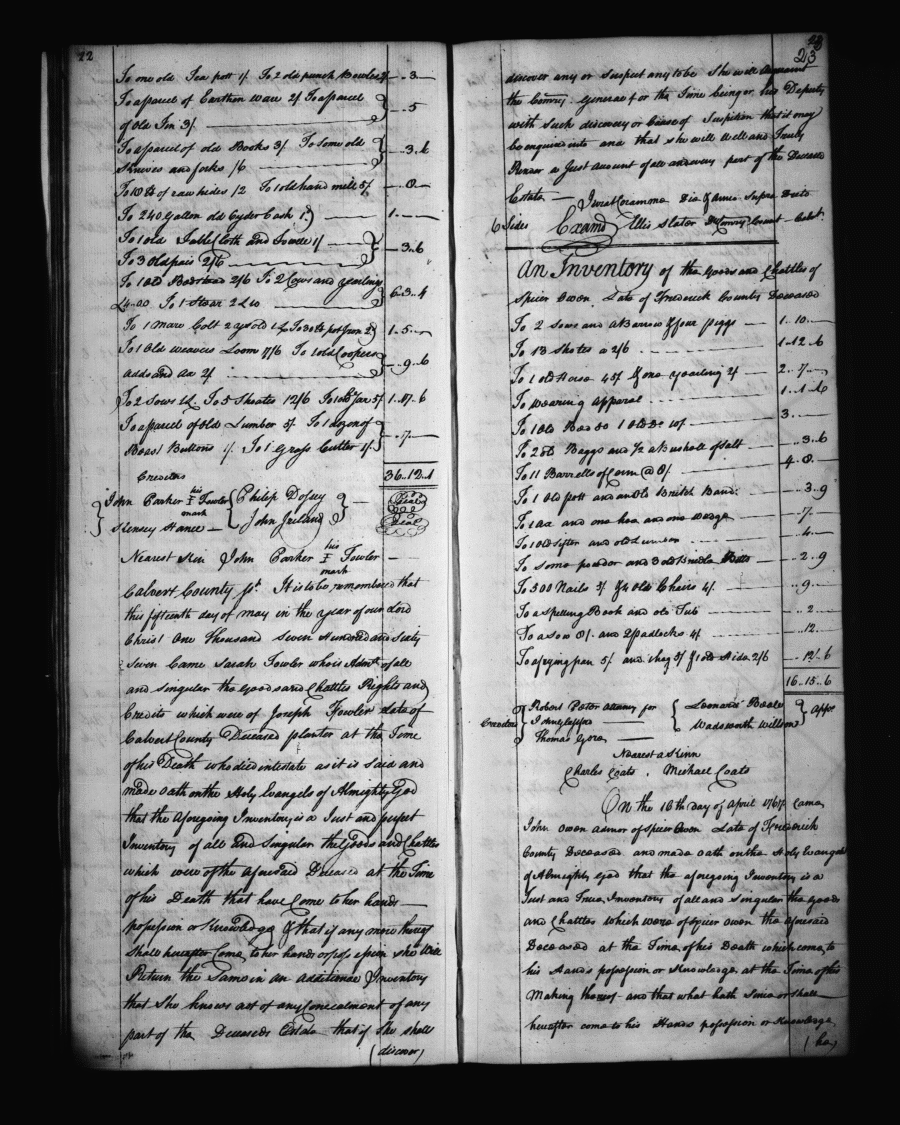 22
To one old Tea pott 1/ To 2 old punch Bowles 2/ - .. 3 -
To a parcel of Earthen ware 2/ To a parcel
of Old Tin 3/ - .. 5
To a parcel of old Books 3/ To Some old
Knives and forks /6 - .. 3 .. 6
To 10 lb of raw hides /2 To 1 old hand mill 5/ - .. 8 -
To 240 Gallon old Cyder Cask 1 1 -
To 1 old Tablecloth and Towell 1/
To 3 old pair 2/6 - .. 3 .. 6
To 1 Old Bedstead 2/6 To 2 Cows and yearling
£4..00 To 1 Stear 2£10 6 .. 3 .. 4
To 1 Mare Colt 2 years old 1£ To 30 lb pot Iron 2 1 .. 5 -
To 1 Old weavers Loom 7/6 To 1 old Coopers
adds and ax 2/ - .. 9 .. 6
To 2 Sows 1£ To 5 Shoates 12/6 To 1 old Jar 5/ 1 .. 17 .. 6
To a parcel of Old Lumber 5/ To 1 dozen of
Brass Buttons 1/ To 1 Grass Cutter 1/ - .. 7 -
Creditors 36 .. 12 .. 1
John Parker his I mark Fowler Philip Dosey Seal
Kensey Hance John Ireland Seal
Nearest Kin John Parker his I mark Fowler
Calvert County Sct. It is to be remembered that
this fifteenth day of may in the year of our Lord
Christ One thousand Seven Hundred and Sixty
Seven Came Sarah Fowler who is Admx of all
and singular the goods and Chattles Rights and
Credits which were of Joseph Fowler late of
Calvert County Deceased planter at the Time
of his Death who died intestate as it is said and
made oath on the Holy Evangels of Almighty God
that the aforegoing Inventory is a Just and perfect
Inventory of all and Singular the Goods and Chattles
which were of the aforesaid Deceased at the Time
of his Death that have Come to her hands
possession or Knowledge & that if any more hereof
shall hereafter Come to her hands or possession she will
Return the Same in an additional Inventory
that She knows not of any Concealment of any
part of the Deceaseds Estate that if She shall
(discover)
23
discover any or suspect any to be She will Acquaint
the Comry. General for the Time being or his Deputy
with Such discovery or Cause of Suspition that it may
be enquired into and that she will Well and Truly
Render a Just amount of all and every part of the Deceased
Estate Jurat Coram me Die & Anno Supra Dicto
6 Sides Examd Ellis Slater D Comry Calvert
An Inventory of the Goods and Chattles of
Spicer Owen Late of Frederick County Deceased
To 2 Sows and a Barrow & four Piggs 1 .. 10 -
To 13 Shotes a 2/6 1 .. 12 .. 6
To 1 old Horse 45/ & one yearling 2/ 2 .. 7 -
To Wearing apparel 1 .. 1 .. 6
To 1 Old Bed 50 1 Old Do 10/ 3 -
To 2 old Baggs and 1/2 a Bushele of Salt .. 3 .. 6
To 11 Barrells of Corn @ 8/ 4 .. 8 -
To 1 Old pott and an old Bridle Band .. 3 .. 9
To 1 ax and one hoe and one wedge .. 7 -
To 1 Old Sifter and old Lumber .. 4 -
To Some powder and 3 old Bridle Betts .. 2 .. 9
To 500 Nails 5/ & 4 old Chairs 4/ .. 9 -
To a Spelling Book and old Tub .. 2 -
To a Sow 8/ and 2 padlocks 4/ .. 12 -
To a frying pan 5/ and 1 hog 5/ & 1 old Hide 2/6 .. 12 .. 6
16 .. 15 .. 6
Creditors Robert Peter attorney for Leonard Beale Appr
John Glassford Wadsworth Willson
Thomas Gore
Nearest a Kinn
Charles Coats, Michael Coats
On the 16th day of April 1767 Came
John Owen Admor of Spicer Owen Late of Frederick
County Deceased and made oath on the Holy Evangels
of Almighty God that the aforegoing Inventory is a
Just and True Inventory of all and Singular the Goods
and Chattles which were of Spicer Owen the aforesaid
Deceased at the Time of his Death which come to
his Hands possession or Knowledge at the Time of his
Making thereof and that what hath Since or shall
hereafter come to his Hands possession or Knowledge
(he)